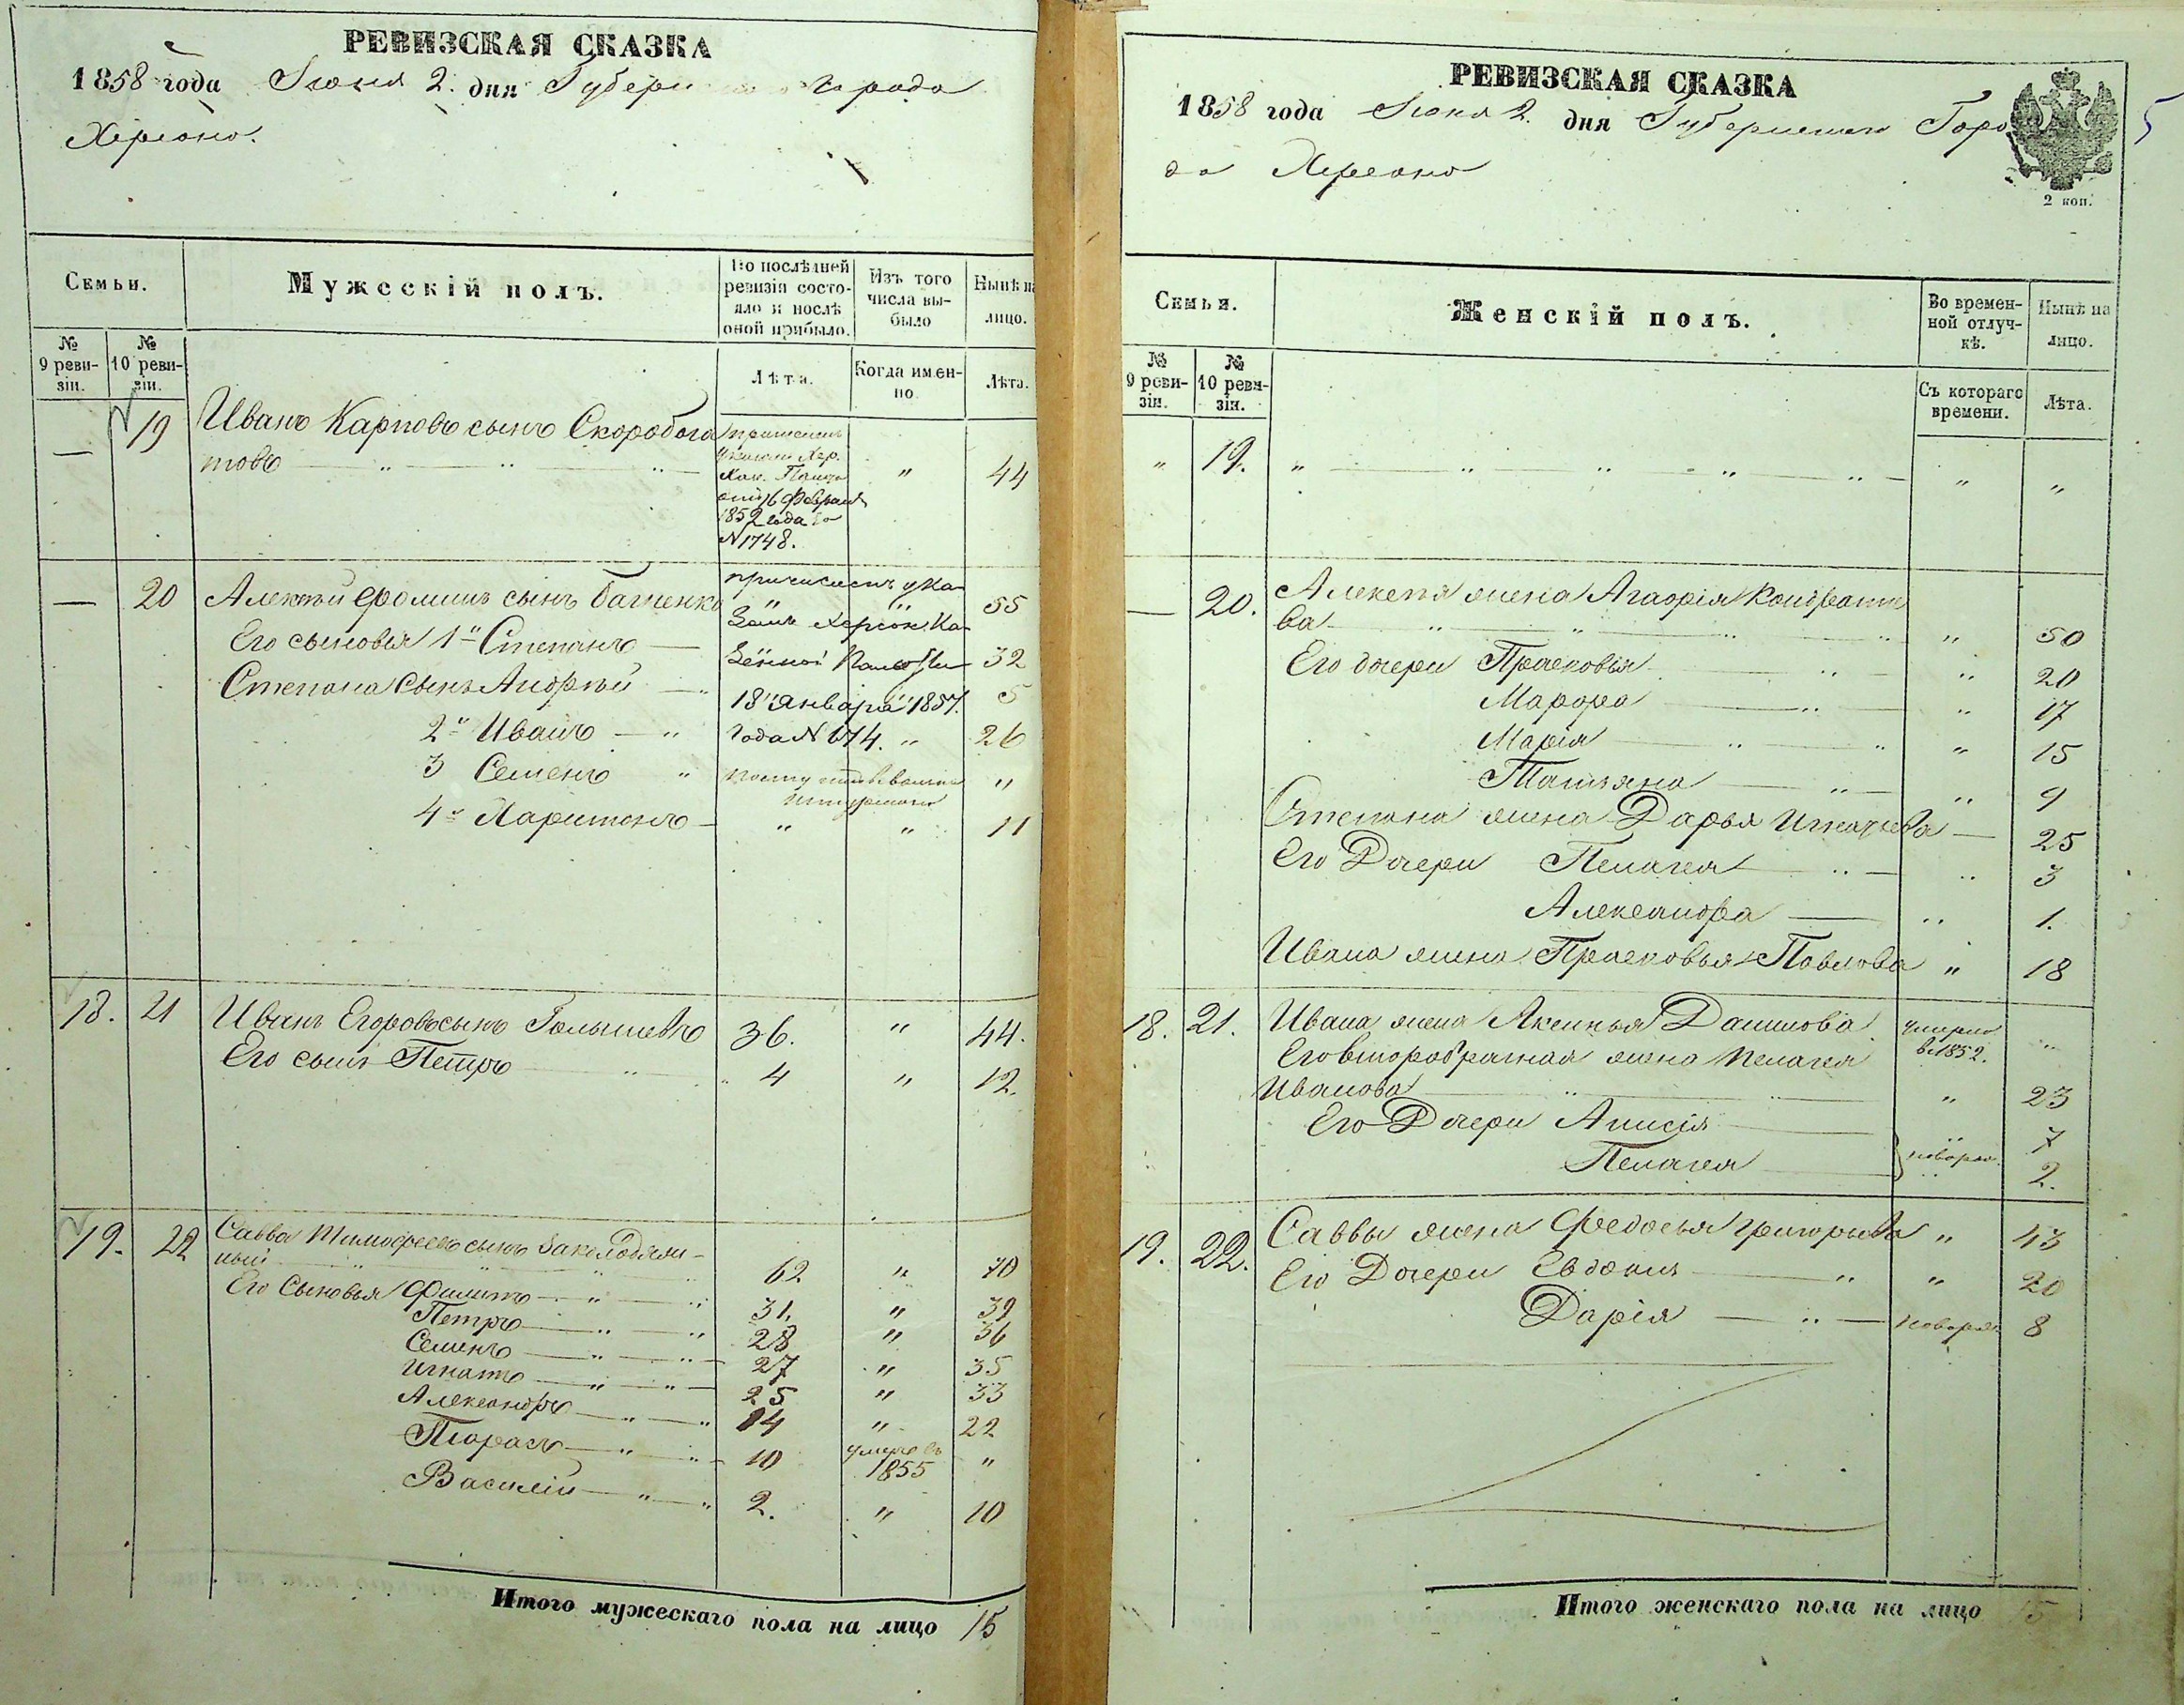 РЕВИЗСКАЯ СКАЗКА
1858 года Іюня 2. дня Губерн города
Херсона.
Семьи.
Мужескій полъ.
По послѣдней ревизіи состо-
яло и послѣ оной прибыло.
Изъ того числа вы-
было
Нынѣ на лицо.
№ 9 реви-
зіи.
№ 10 реви-
зіи.
Лѣта.
Когда имен-
но
Лѣта.
— 19 Иванъ Карповъ сынъ Скоробога
товъ " " " " 44
Хер.
отъ 16 Февраля
1852 года за
N 1748.
— 20 Алексѣй Фоминъ сынъ причисленъ ука- 55
Его сыновья 1й Степанъ — зомъ Херсон. Ка- 32
Степана сынъ Андрѣй — зенной Палаты 5
18 Января 1857.
2й Иванъ — " года N 674. " 26
3 Семенъ " "
4й Харитонъ — " " 11
18. 21 Иванъ Егоровъ сынъ Голышевъ 36. " 44.
Его сынъ Петръ " " 4 " 12.
19. 22 Савва Тимофеевъ сынъ
ный " " " 62 " 70
Его Сыновья Филипъ — " — " 31. " 39
Петръ — " — " 28 " 36
Семенъ — " — " — 27 " 35
Игнатъ — " — " — 25 " 33
Александръ — " — " 14 " 22
Тарасъ — " — " — 10 умеръ въ 1855 "
Василій — " — " 2. " 10
Итого мужескаго пола на лицо 15
РЕВИЗСКАЯ СКАЗКА
1858 года Іюня 2. дня Губернскаго Горо
да Херсона
2 коп.
5
Семьи.
Женскій полъ.
Во времен-
ной отлуч-
кѣ.
Нынѣ на лицо.
№ 9 реви-
зіи.
№ 10 реви-
зіи.
Съ котораго времени.
Лѣта.
" 19. " — " — " — " — " — " "
— 20. Алексея жена Агафія Кондрать
ва " " " " " 50
Его дочери Прасковья — " — " 20
Марфа — " — " 17
Марія — " — " " 15
Татьяна — " — " 9
Степана жена Дарья Игнатьева — 25
Его Дочери Пелагея — " — " 3
Александра — " 1.
Ивана жена Прасковья Павлова " 18
18. 21. Ивана жена Аксинья Данилова умерла
въ 1852. "
Его второбрачная жена Пелагея
Иванова — " — " — " 23
Его Дочери Анисія — 7
Пелагея — новорож. 2.
19. 22. Саввы жена Федосья Григорьева " 43
Его Дочери Евдокия — " " 20
Дарія — " — новорож 8
Итого женскаго пола на лицо 15